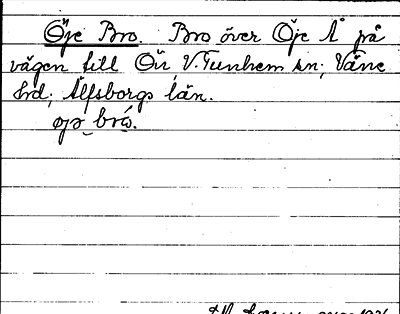 Öje Bro. Bro över Öje Å på
vägen till Ön, V. Tunhem sn; Väne
hrd; Älfsborgs län.